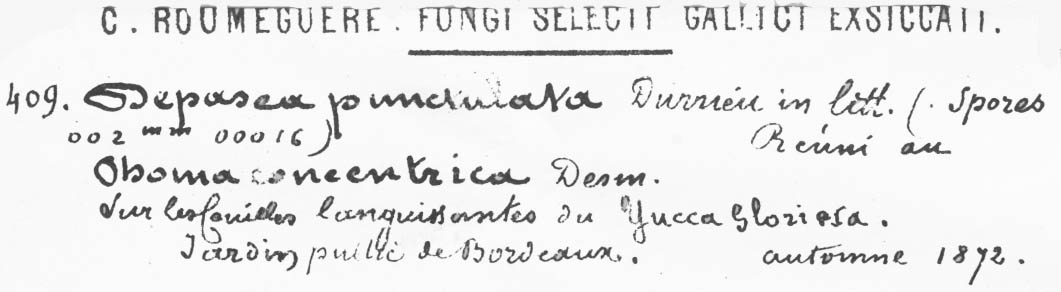 C. ROUMEGUERE. FUNGI SELECTI GALLICI EXSICCATI.
409. Depazea punctulata Durrieu in litt. (. Spores
002 mm 00016) Réuni au
Phoma concentrica Desm.
Sur les feuilles languissantes du Yucca Gloriosa.
Jardin public de Bordeaux. automne 1872.